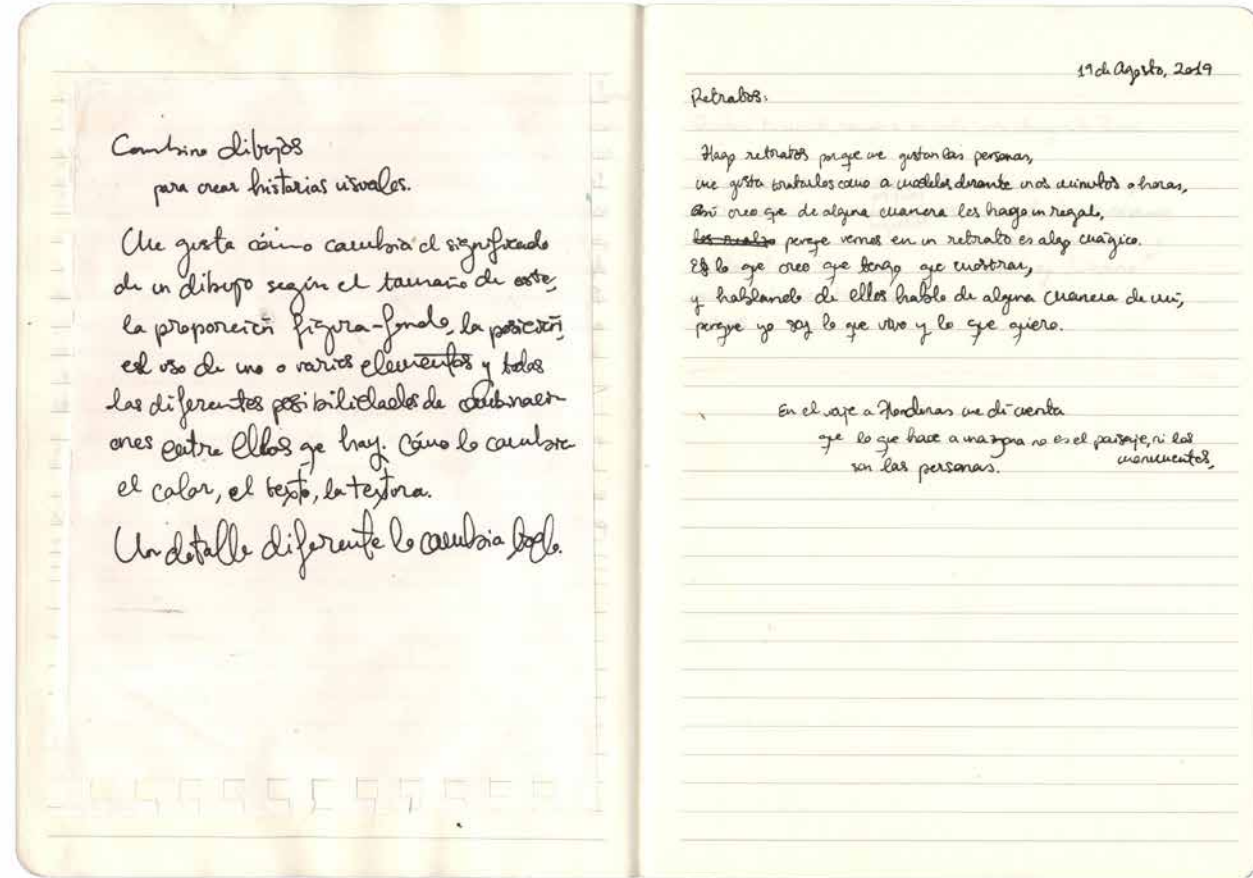 Combino dibujos
para crear historias visuales.
Me gusta cómo cambia el significado
de un dibujo según el tamaño de este,
la proporción figura-fondo, la posición,
el uso de uno o varios elementos y todas
las diferentes posibilidades de combinaci-
ones entre ellos qe hay. Cómo lo cambia
el color, el texto, la textura.
Un detalle diferente lo cambia todo.
19 de Agosto, 2019
Retratos:
Hago retratos porqe me gustan las personas,
me gusta tratarlos como a modelos durante unos minutos o horas,
así creo qe de alguna manera les hago un regalo,
porqe vernos en un retrato es algo mágico.
Es lo qe creo qe tengo qe mostrar,
y hablando de ellos hablo de alguna manera de mí,
porqe yo soy lo qe vivo y lo qe qiero.
En el viaje a Honduras me di cuenta
qe lo qe hace a una zona no es el paisaje, ni los
monumentos,
son las personas.